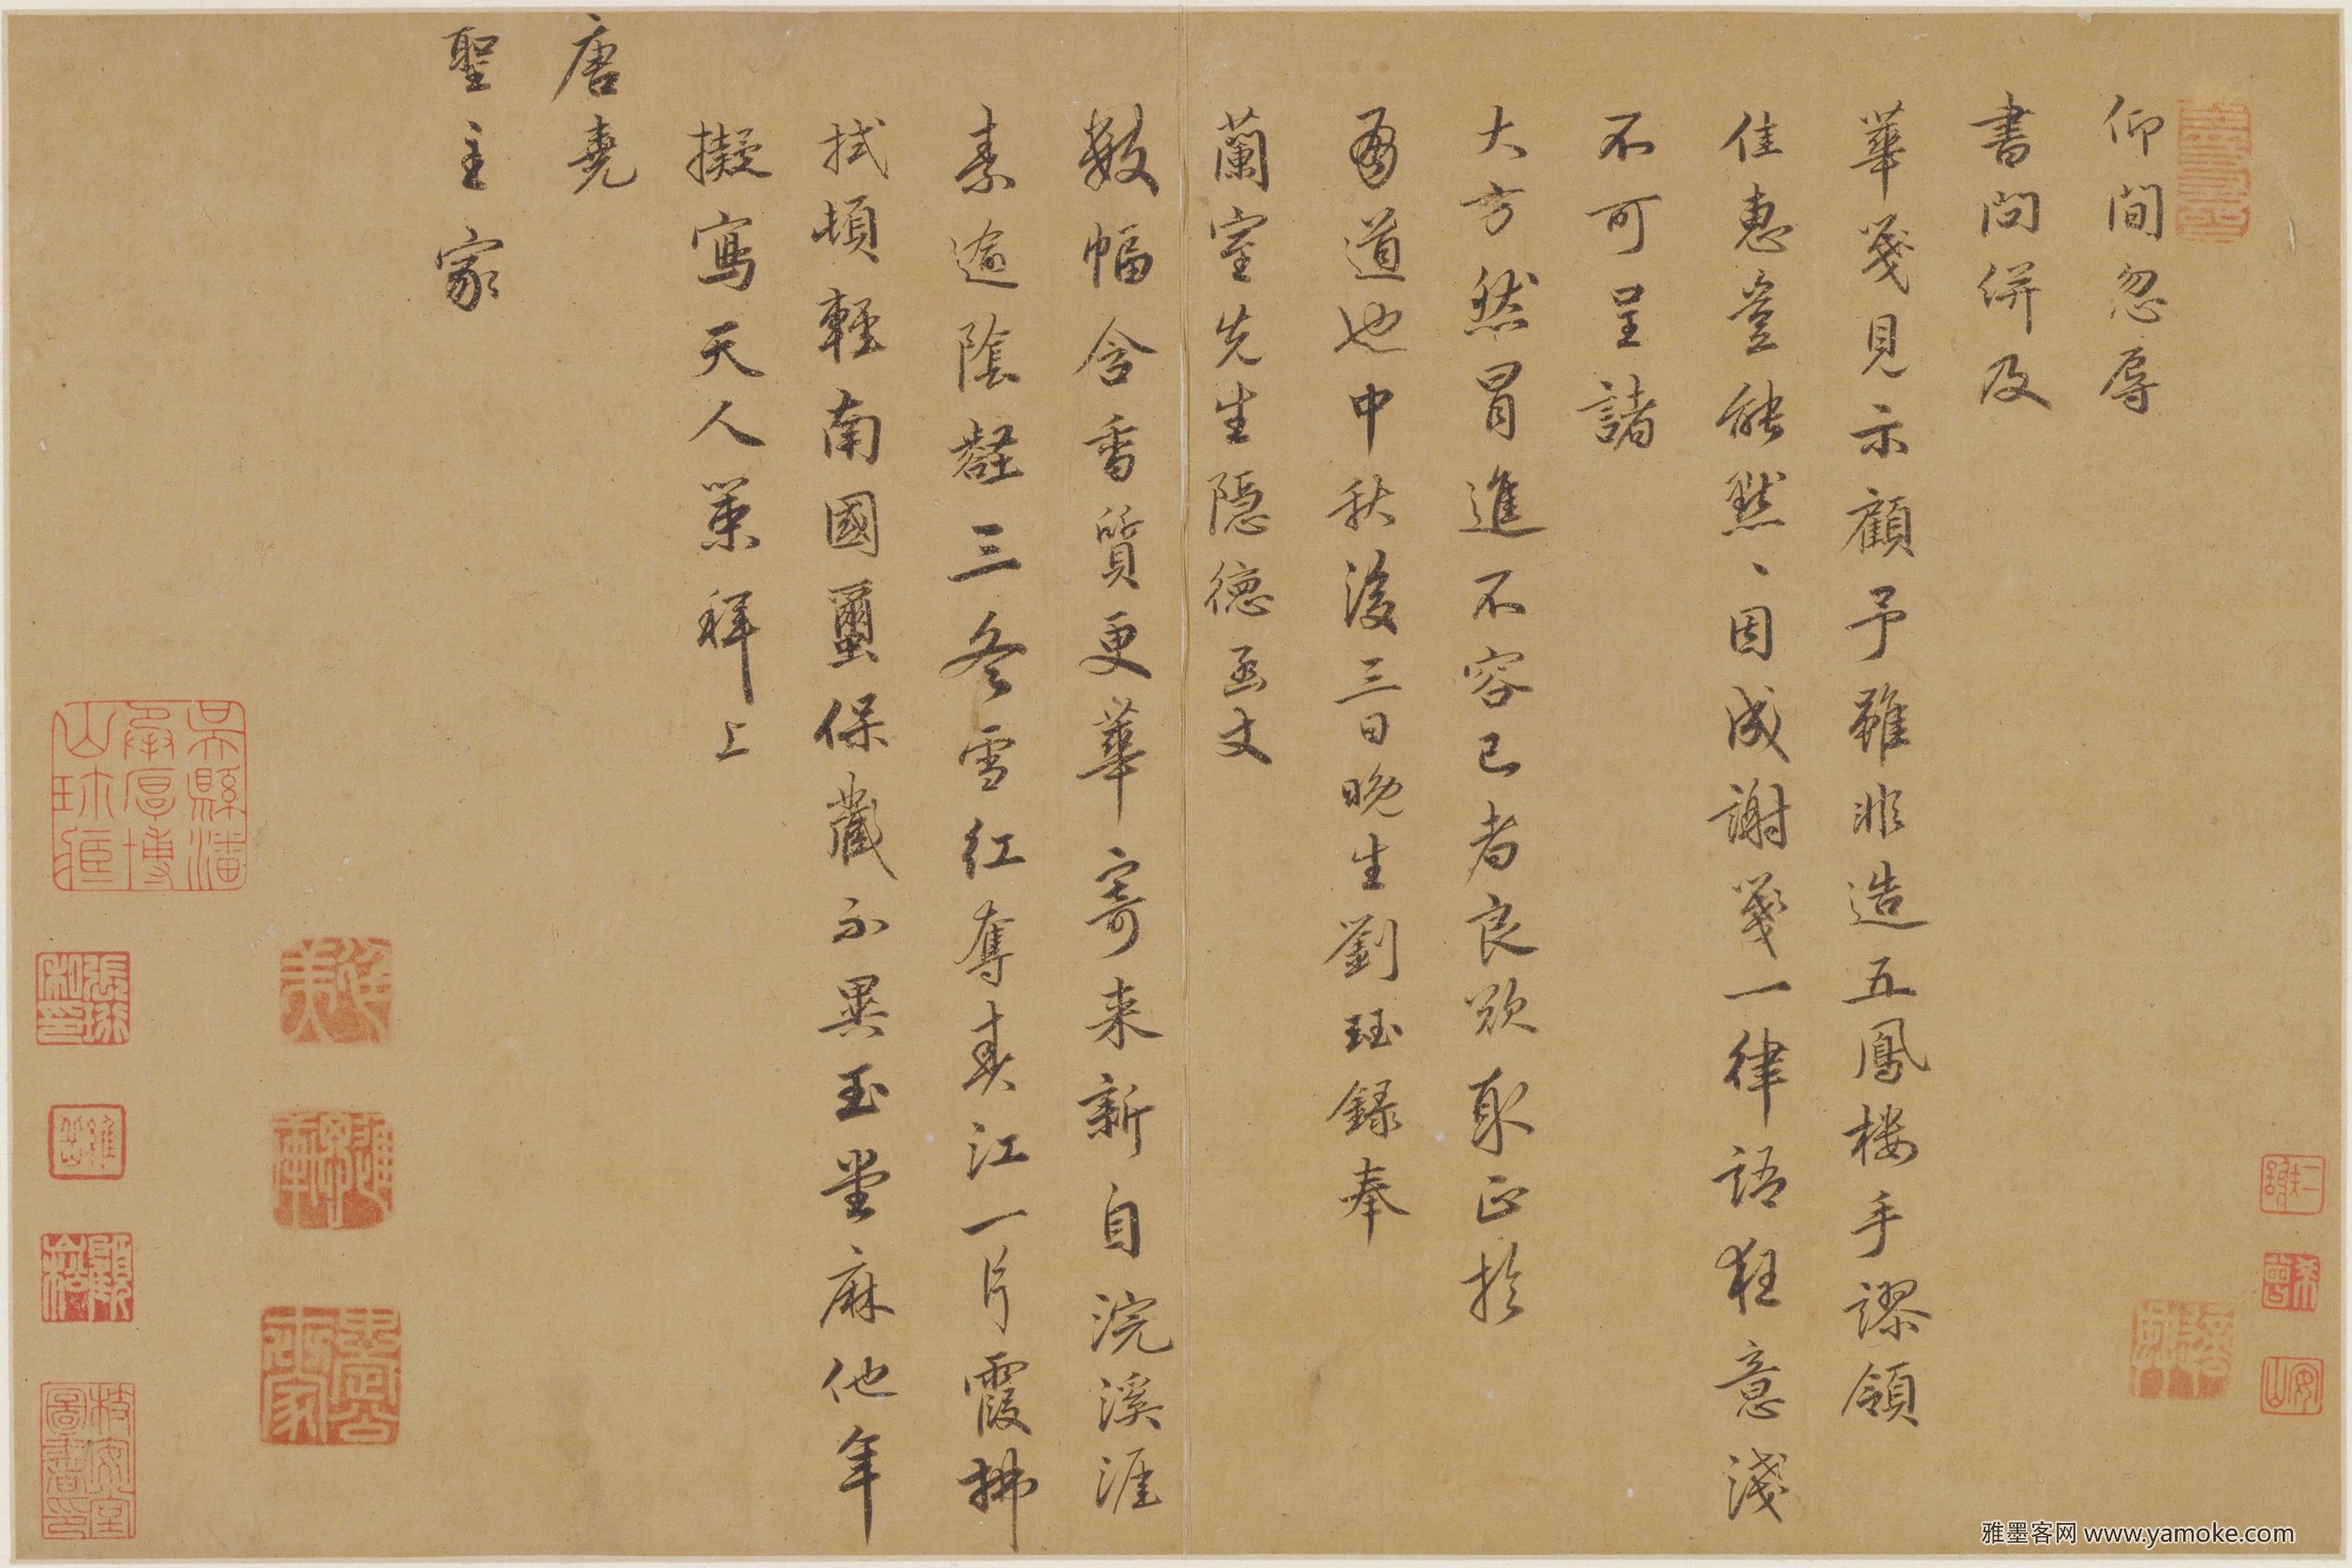 仰間忽辱
書問併及
華箋見示顧予雖非造五鳳楼手謬領
佳惠豈能默、因成謝箋一律語狂意淺
不可呈諸
大方然冒進不容已者良欲取正於
有道也中秋後三日晚生劉珏錄奉
蘭室先生隱德函丈
數幅含香質更華寄来新自浣溪涯
素逾陰壑三冬雪紅奪春江一片霞拂
拭頓輕南國璽保藏不異玉堂麻他年
擬寫天人策拜上
唐堯
聖主家
吳縣潘承厚博山珍藏
雅墨客网 www.yamoke.com